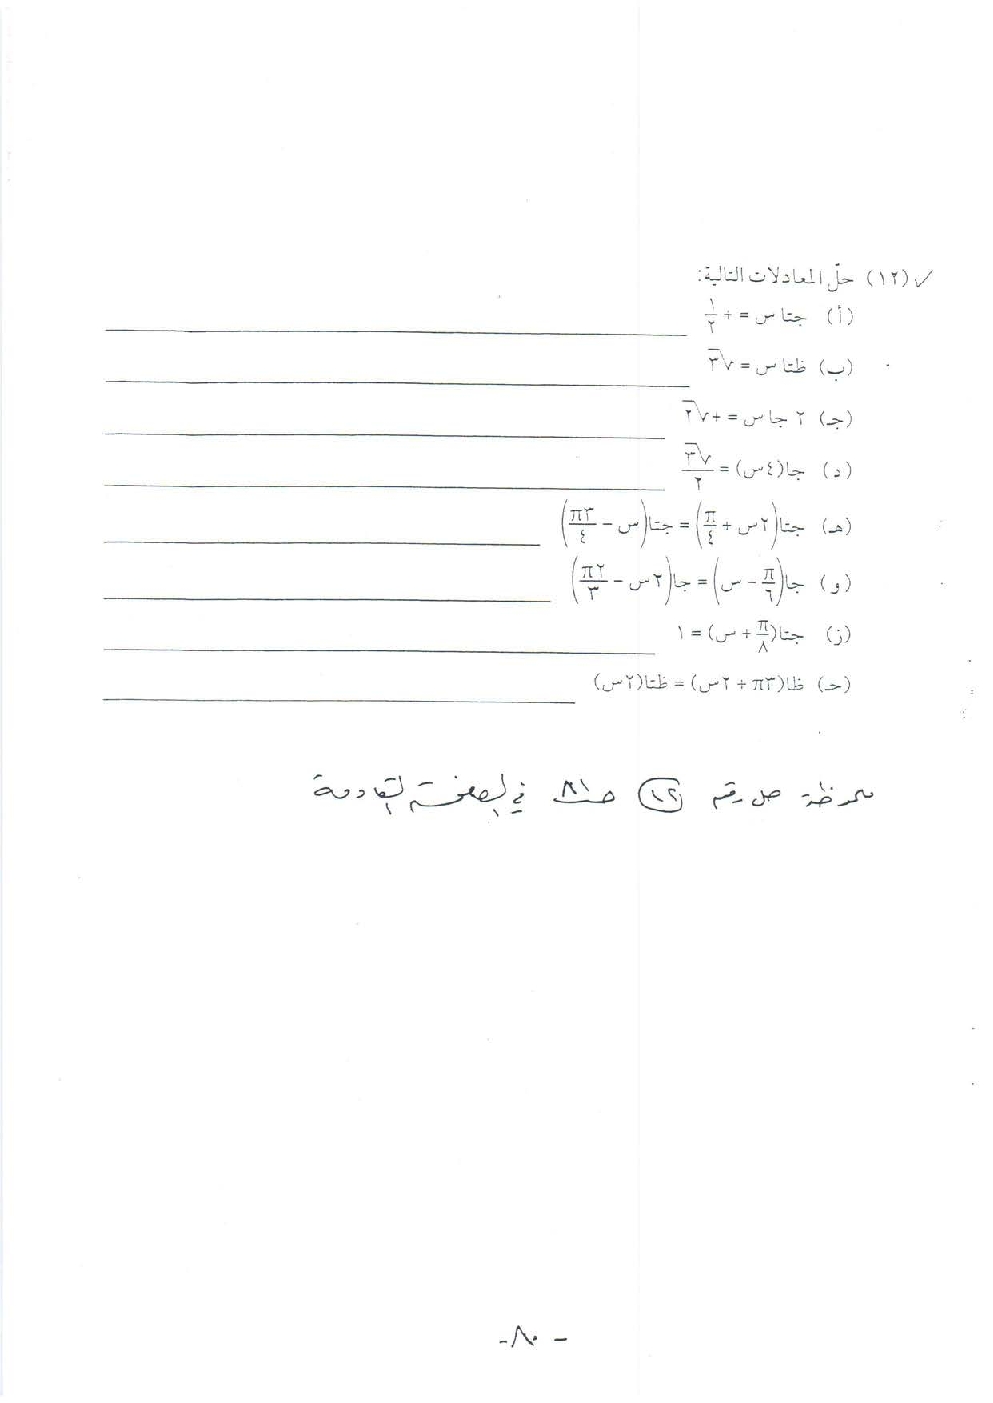 ✓ (١٢) حلّ المعادلات التالية:
(أ) جتا س = + ١/٢
(ب) ظتا س = √٣
(جـ) ٢ جا س = + √٢
(د) جا(٤س) = √٣/٢
(هـ) جتا(٢س + π/٤) = جتا(س − π٣/٤)
(و) جا(π/٦ − س) = جا(٢س − π٢/٣)
(ز) جتا(π/٨ + س) = ١
(حـ) ظا(π٣ + ٢س) = ظتا(٢س)
ملاحظة حل رقم (١٢) ص٨١ في الصفحة القادمة
- ٨٠ -